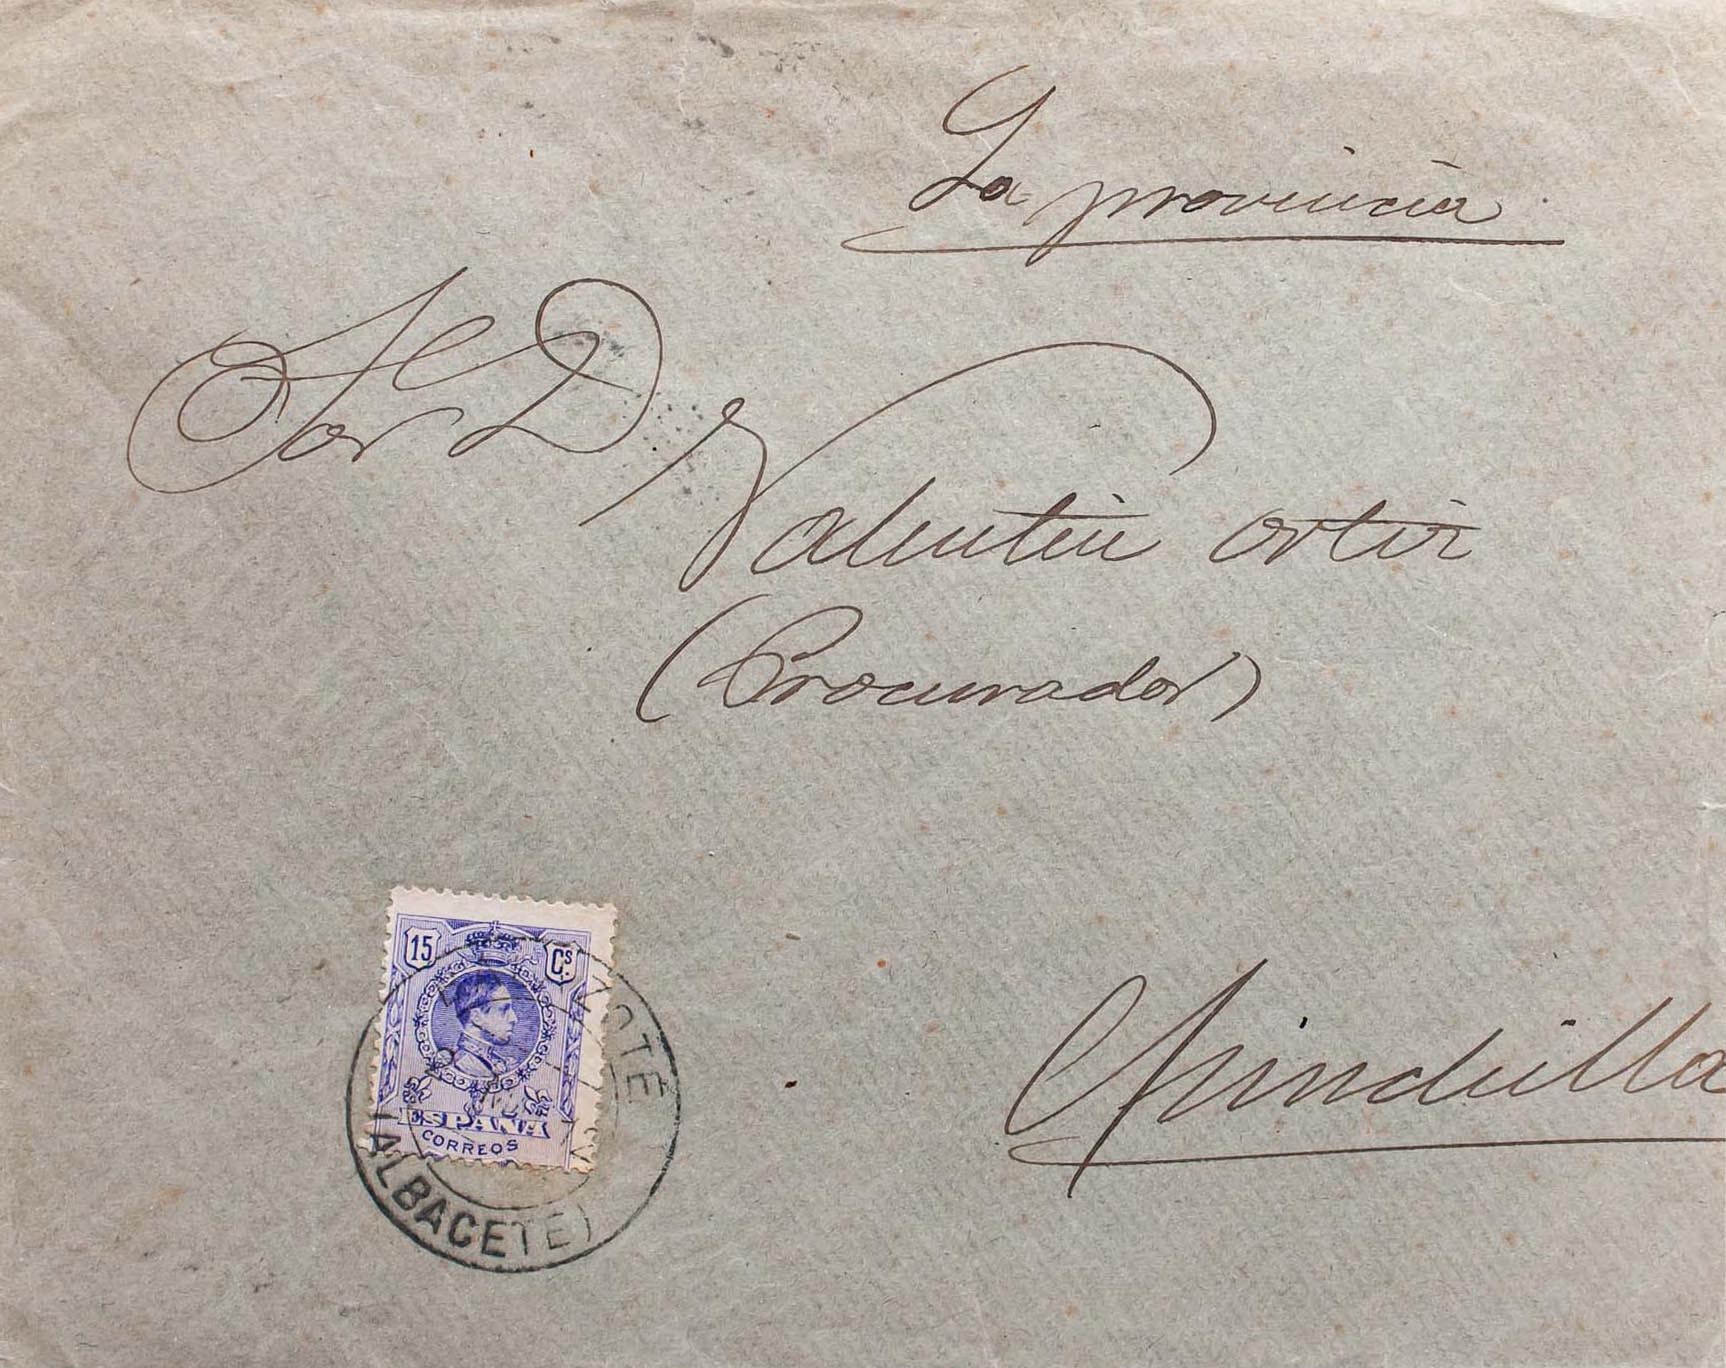 La provincia
Sor D
Valentin ortiz
(Procurador)
Chinchilla
15 Cs.
ESPAÑA
CORREOS
(ALBACETE)